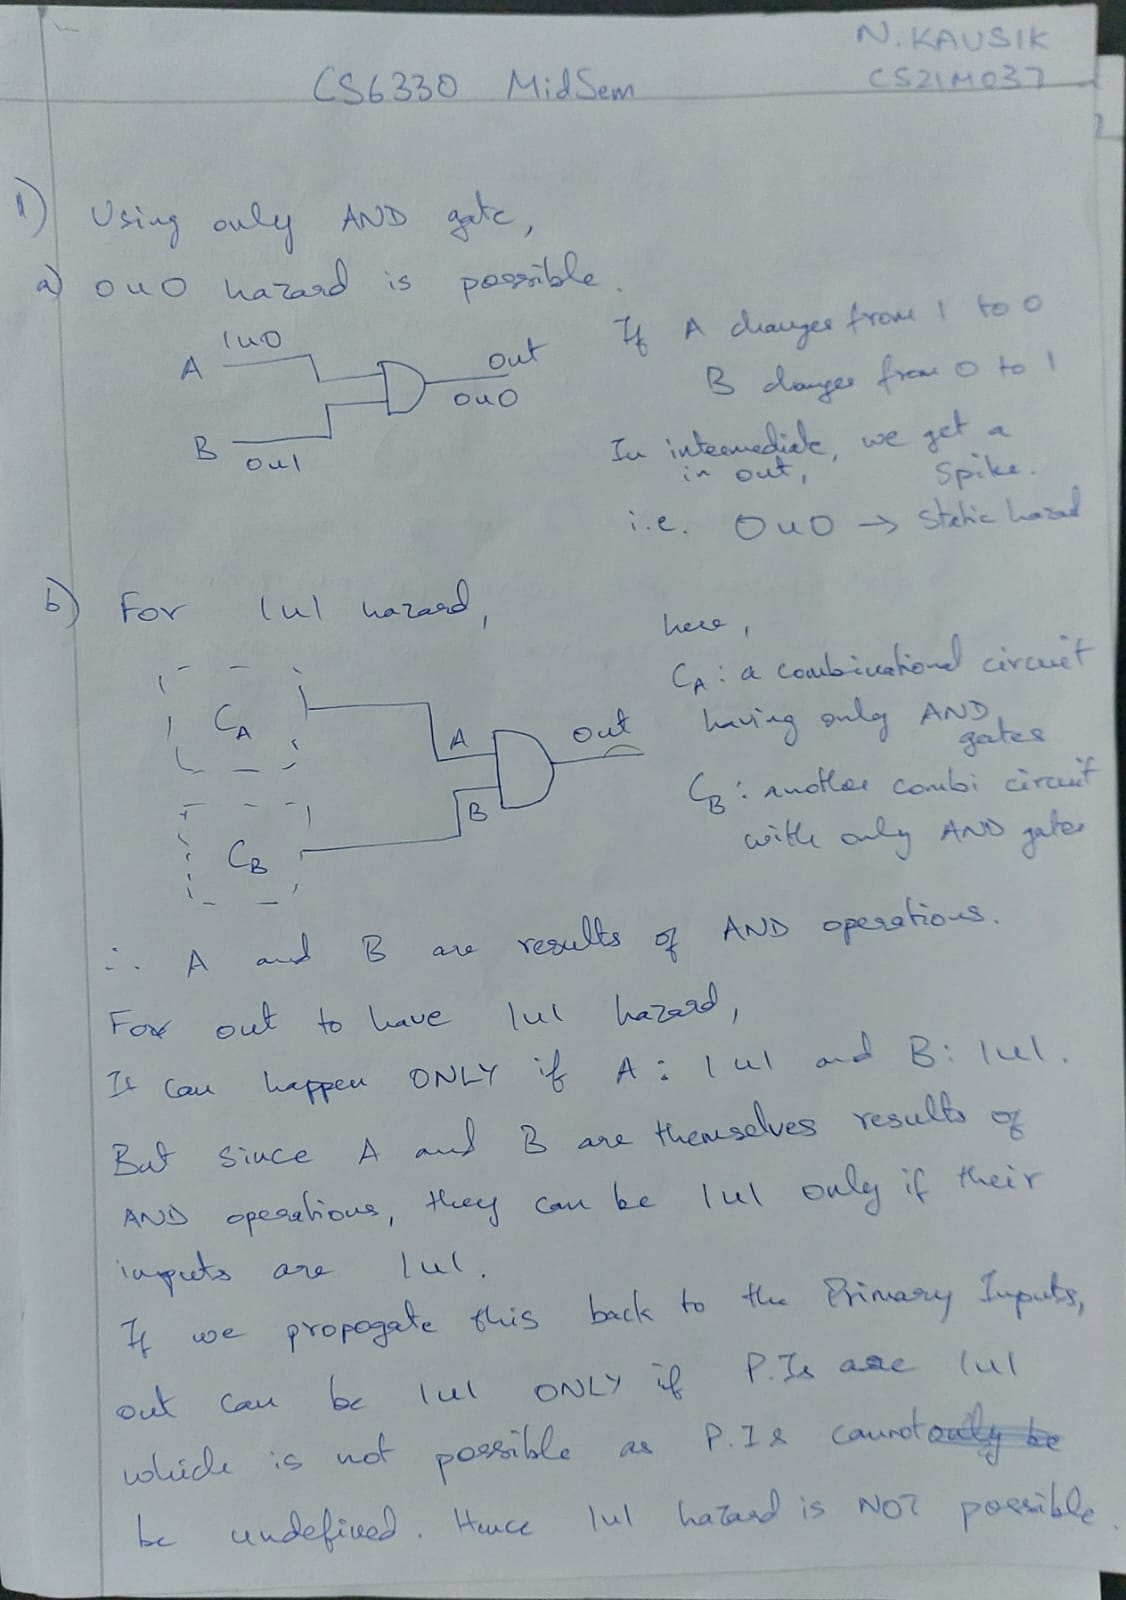 N. KAUSIK
CS21M037
CS6330 MidSem
1) Using only AND gate,
a) 0u0 hazard is possible.
A 1u0
out
0u0
B 0u1
If A changes from 1 to 0
B changes from 0 to 1
In intermediate, we get a
in out, spike.
i.e. 0u0 → Static hazad
b) For 1u1 hazard,
CA
A
out
B
CB
here,
CA : a combinational circuit
having only AND
gates
CB : another combi circuit
with only AND gates
∴ A and B are results of AND operations.
For out to have 1u1 hazard,
It can happen ONLY if A : 1u1 and B : 1u1.
But since A and B are themselves results of
AND operations, they can be 1u1 only if their
inputs are 1u1.
If we propogate this back to the Primary Inputs,
out can be 1u1 ONLY if P.Is are 1u1
which is not possible as P.Is cannot only be
be undefined. Hence 1u1 hazard is NOT possible.